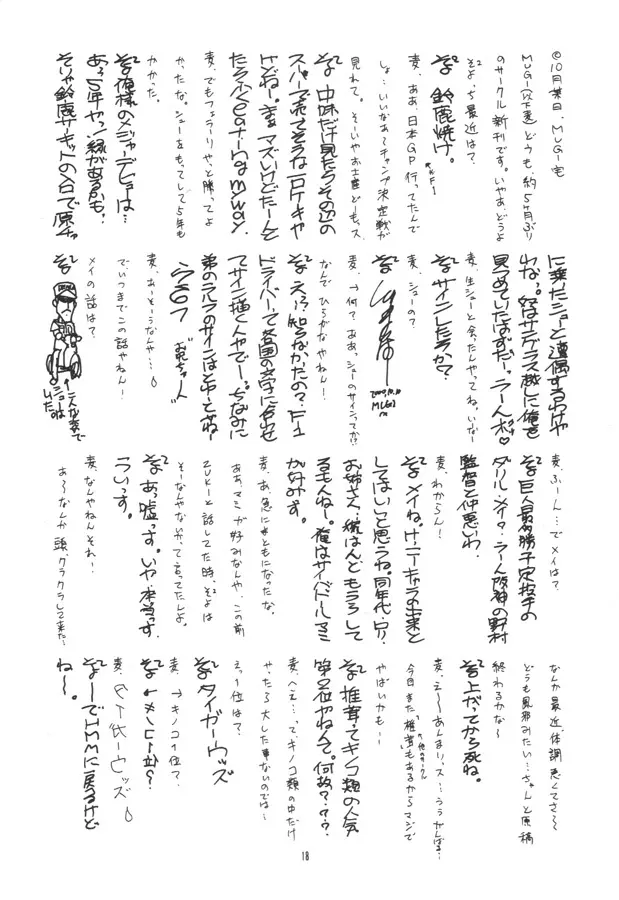 ©10月某日、MUGI宅
MUGI(以下麦)どうも、約5ヶ月ぶり
のサークル新刊です。いやぁ、どうよ
そよっち最近は?
そ 鈴鹿焼け。
※F1
麦、ああ、日本GP行ってたんで
しょ…いいなあ〜チャンプ決定戦が
見れて。そういやお土産ども。ス
そ 中味だけ見たらその辺の
スーパーで売ってそうな一口ケーキや
けどねー。まぁマズいけどたーんと
たらふくeating my way.
麦、でもフェラーリやっと勝ってよ
やったな。シューをもってして5年も
かかった。
そ 俺様のメジャーデビューは…
あっ5年やン!縁があるかも。
そりゃ鈴鹿サーキットの入口で原チャ
に乗ったシューと遭遇するわけや
わな。奴はサングラス越しに俺を
見つめていたはずだ。うーん
麦、生シューと会ったんやってね。いいなー
そ サインしたろか?
麦、シューの?
そ
2000.10.
MUGI
麦、→何?ああっ、シューのサインってか!?
なんでひらがなやねん!
そ え!?知らなかったの?F1
ドライバーって各国の文字に合わせ
てサイン描くんやでー。ちなみに
弟のラルフのサインはこうやとねー
らるふ
お兄ちゃ〜ん
麦、あーそうなんや…
で、いつまでこの話やねん!
メイの話は?
そ
←人が来て
シューのは
いた
麦、ふーん…でメイは?
そ 巨人最多勝予定投手の
ダリル・メイ?うーん阪神の野村
監督と仲悪いわ。
麦、わからん!
そ メイね。け、ニューキャラの出来と
してはいいと思うね。同年代・ロリ・
お姉さん、続はんどもうろして
るもんねー。俺はサイバドールマミ
が好みす。
麦、あ、急にまともになったな。
ああ、マミが好みなんや、この前
ZUKEと話してた時、そよは
そーなんやないかって言ってたんよ。
そ あっ嘘っす。いや、本当っす。
ういっす。
麦、なんやねんそれ!
あ〜なんか頭、クラクラして来た…
なんか最近、体調悪くてさ〜
どうも風邪みたい…ちゃんと原稿
終わるかな〜
そ 上がってから死ね。
麦、え〜あんまりッス…ううがんばる…
今回また"椎茸"もあるからマジで
やばいかも…
そ 椎茸ってキノコ類の人気
第2位やねんて。何故???
麦、へえ…って、キノコ類の中だけ
やったら大した事ないのでは〜
えっ1位は?
そ タイガーウッズ
麦、→キノコ1位?
麦、ウッズ
そ ーでHMMに戻るけど
ね〜。
18